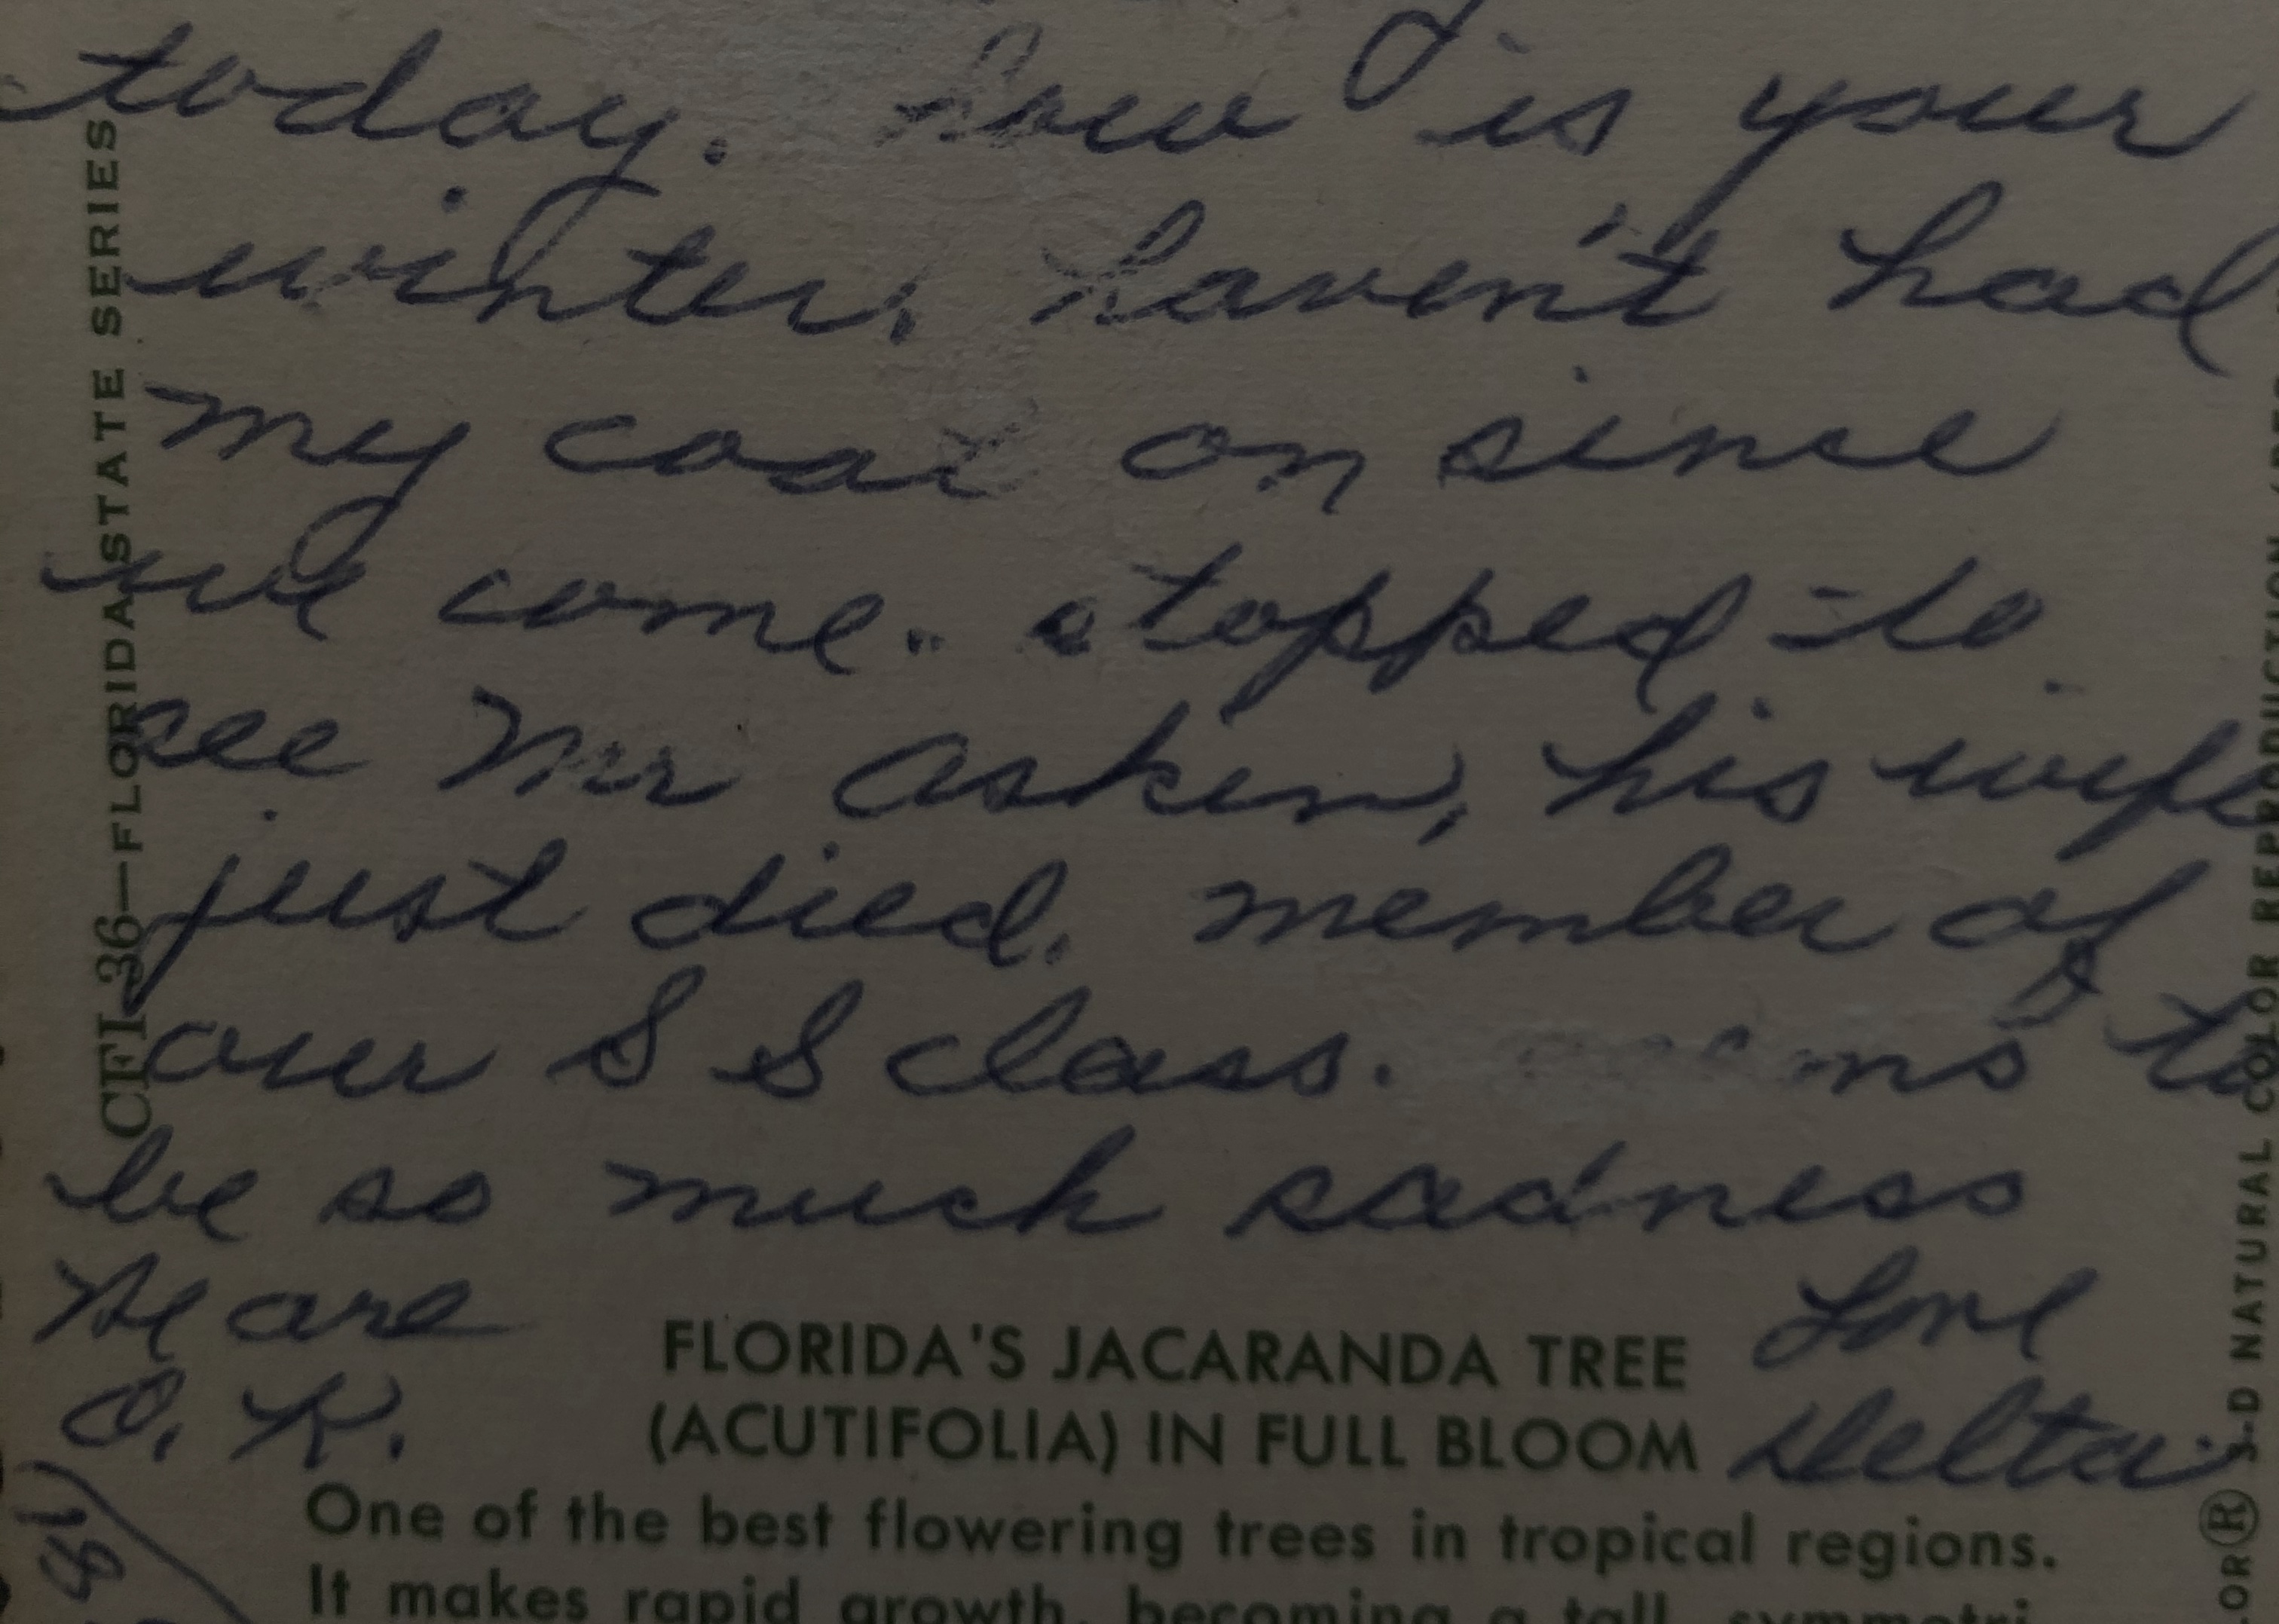 today. how is your
winter. haven't had
my coat on since
we come.. stopped to
see Mr Asken, his wife
just died. member of
our S S class. to
be so much sadness
We are
O. K.
Love
Delta
FLORIDA'S JACARANDA TREE
(ACUTIFOLIA) IN FULL BLOOM
One of the best flowering trees in tropical regions.
It makes rapid growth, becoming a tall, symmetri
CFI 36—FLORIDA STATE SERIES
OR® 3-D NATURAL COLOR REPRODUCTION